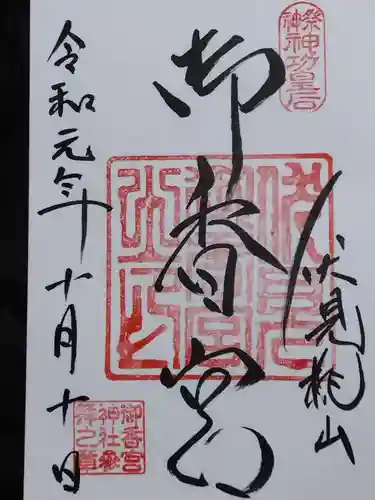 祭神
神功皇后
伏見桃山
御香宮
令和元年十月十日
御香宮
神社参
拜之章